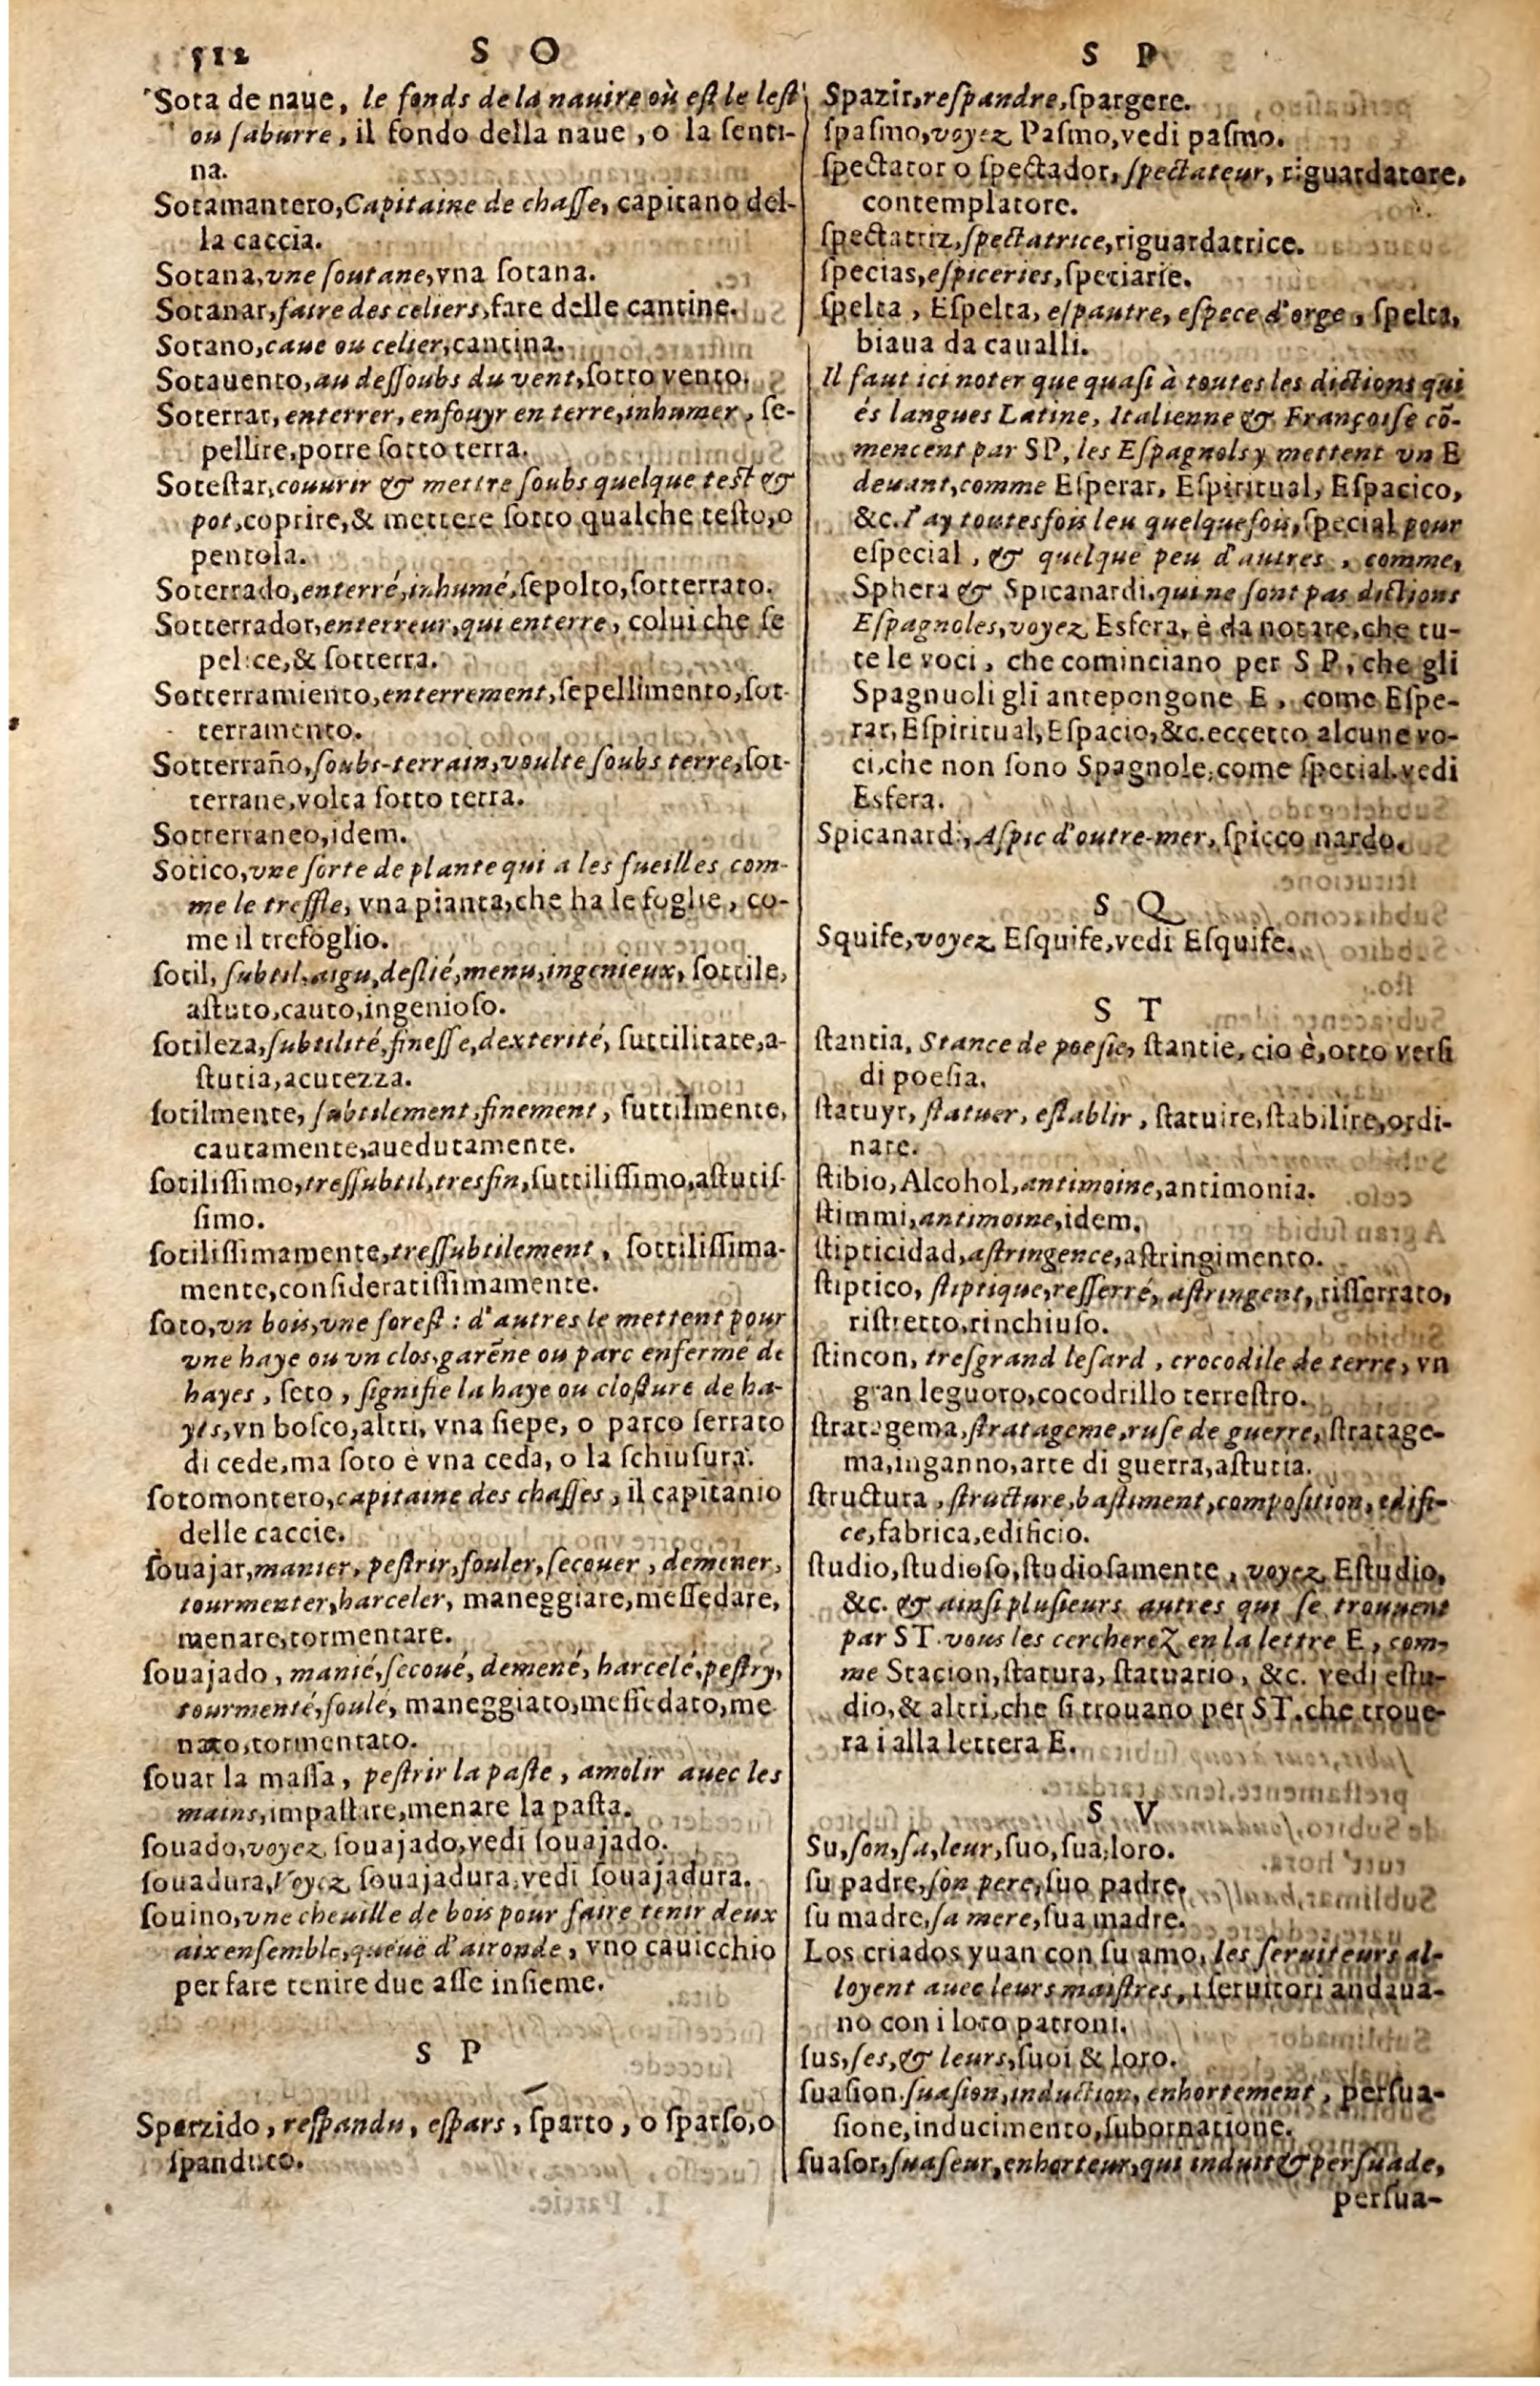 512 S O
Sota de naue, le fonds de la nauire où eſt le leſt
ou ſaburre, il fondo della naue, o la ſenti-
na.
Sotamantero, Capitaine de chaſſe, capitano del-
la caccia.
Sotana, vne ſoutane, vna ſotana.
Sotanar, faire des celiers, fare delle cantine.
Sotano, caue ou celier, cantina.
Sotauento, au deſſoubs du vent, ſotto vento.
Soterrar, enterrer, enfouyr en terre, inhumer, ſe-
pellire, porre ſotto terra.
Soteſtar, couurir & mettre ſoubs quelque teſt &
pot, coprire, & mettere ſotto qualche teſto, o
pentola.
Soterrado, enterré, inhumé, ſepolto, ſotterrato.
Sotterrador, enterreur, qui enterre, colui che ſe
pelice, & ſotterra.
Sotterramiento, enterrement, ſepellimento, ſot-
terramento.
Sotterraño, ſoubs-terrain, voulte ſoubs terre, ſot-
terrane, volta ſotto terra.
Sotterraneo, idem.
Sotico, vne ſorte de plante qui a les fueilles com-
me le treffle, vna pianta, che ha le foglie, co-
me il trefoglio.
ſotil, ſubtil, aigu, deſlié, menu, ingenieux, ſottile,
aſtuto, cauto, ingenioſo.
ſotileza, ſubtilité, fineſſe, dexterité, ſuttilitate, a-
ſtutia, acutezza.
ſotilmente, ſubtilement, finement, ſuttilmente,
cautamente, auedutamente.
ſotiliſſimo, treſſubtil, tresfin, ſuttiliſſimo, aſtutiſ-
ſimo.
ſotiliſſimamente, treſſubtilement, ſottiliſſima-
mente, conſideratiſſimamente.
ſoto, vn bois, vne foreſt : d'autres le mettent pour
vne haye ou vn clos, garẽne ou parc enfermé de
hayes, ſeto, ſignifie la haye ou cloſture de ha-
yes, vn boſco, altri, vna ſiepe, o parco ſerrato
di cede, ma ſoto è vna ceda, o la ſchiuſura.
ſotomontero, capitaine des chaſſes, il capitanio
delle caccie.
ſouajar, manier, peſtrir, fouler, ſecouer, demener,
tourmenter, harceler, maneggiare, meſſedare,
menare, tormentare.
ſouajado, manié, ſecoué, demené, harcelé, peſtry,
tourmenté, foulé, maneggiato, meſſedato, me
nato, tormentato.
ſouar la maſſa, peſtrir la paſte, amolir auec les
mains, impaſtare, menare la paſta.
ſouado, voyez ſouajado, vedi ſouajado.
ſouadura, Voyez ſouajadura, vedi ſouajadura.
ſouino, vne cheuille de bois pour faire tenir deux
aix enſemble, queuë d'aironde, vno cauicchio
per fare tenire due aſſe inſieme.
S P
Sparzido, reſpandu, eſpars, ſparto, o ſparſo, o
ſpanduto.
S P
Spazir, reſpandre, ſpargere.
ſpaſmo, voyez Paſmo, vedi paſmo.
ſpectator o ſpectador, ſpectateur, riguardatore,
contemplatore.
ſpectatriz, ſpectatrice, riguardatrice.
ſpecias, eſpiceries, ſpetiarie.
ſpelta, Eſpelta, eſpautre, eſpece d'orge, ſpelta,
biaua da caualli.
Il faut ici noter que quaſi à toutes les dictions qui
és langues Latine, Italienne & Françoiſe cõ-
mencent par SP, les Eſpagnols y mettent vn E
deuant, comme Eſperar, Eſpiritual, Eſpacico,
&c. I'ay toutesfois leu quelquefois, ſpecial pour
eſpecial, & quelque peu d'autres, comme,
Sphera & Spicanardi, qui ne ſont pas dictions
Eſpagnoles, voyez Esfera, è da notare, che tu-
te le voci, che cominciano per S P, che gli
Spagnuoli gli antepongone E, come Eſpe-
rar, Eſpiritual, Eſpacio, &c. eccetto alcune vo-
ci, che non ſono Spagnole, come ſpetial. vedi
Esfera.
Spicanardi, Aſpic d'outre-mer, ſpicco nardo.
S Q
Squife, voyez Eſquife, vedi Eſquife.
S T
ſtantia, Stance de poeſie, ſtantie, cio è, otto verſi
di poeſia.
ſtatuyr, ſtatuer, eſtablir, ſtatuire, ſtabilire, ordi-
nare.
ſtibio, Alcohol, antimoine, antimonia.
ſtimmi, antimoine, idem.
ſtipticidad, aſtringence, aſtringimento.
ſtiptico, ſtiptique, reſſerré, aſtringent, riſſerrato,
riſtretto, rinchiuſo.
ſtincon, treſgrand leſard, crocodile de terre, vn
gran leguoro, cocodrillo terreſtro.
ſtratagema, ſtratageme, ruſe de guerre, ſtratage-
ma, inganno, arte di guerra, aſtutia.
ſtructura, ſtructure, baſtiment, compoſition, edifi-
ce, fabrica, edificio.
ſtudio, ſtudioſo, ſtudioſamente, voyez Eſtudio,
&c. & ainſi pluſieurs autres qui ſe trouuent
par ST. vous les chercherez en la lettre E, com-
me Stacion, ſtatura, ſtatuario, &c. vedi eſtu-
dio, & altri, che ſi trouano per ST. che troue-
ra i alla lettera E.
S V
Su, ſon, ſa, leur, ſuo, ſua, loro.
ſu padre, ſon pere, ſuo padre.
ſu madre, ſa mere, ſua madre.
Los criados yuan con ſu amo, les ſeruiteurs al-
loyent auec leurs maiſtres, i ſeruitori andaua-
no con i loro patroni.
ſus, ſes, & leurs, ſuoi & loro.
ſuaſion, ſuaſion, induction, enhortement, perſua-
ſione, inducimento, ſubornatione.
ſuaſor, ſuaſeur, enhorteur, qui induit & perſuade,
perſua-